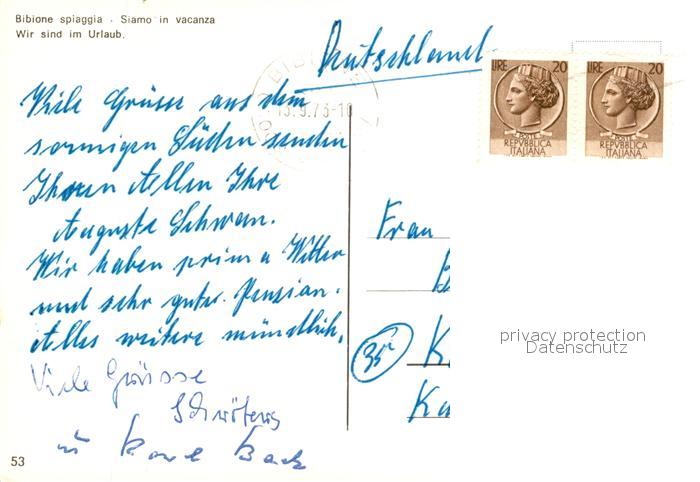 Bibione spiaggia . Siamo in vacanza
Wir sind im Urlaub.
Deutschland
LIRE 20
POSTE
REPVBBLICA
ITALIANA
LIRE 20
POSTE
REPVBBLICA
ITALIANA
Viele Grüsse aus dem
sonnigen Süden senden
Ihnen Allen Ihre
Auguste Schwan.
Wir haben prima Wetter
und sehr gute Pension.
Alles weitere mündlich.
Viele Grüsse
Schröters
u
Frau
B
35
K
Ka
privacy protection
Datenschutz
53